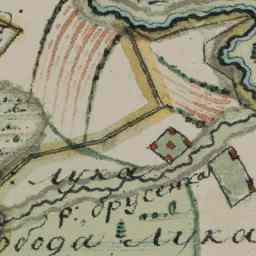 Лука
р: брусенка
обода Лука